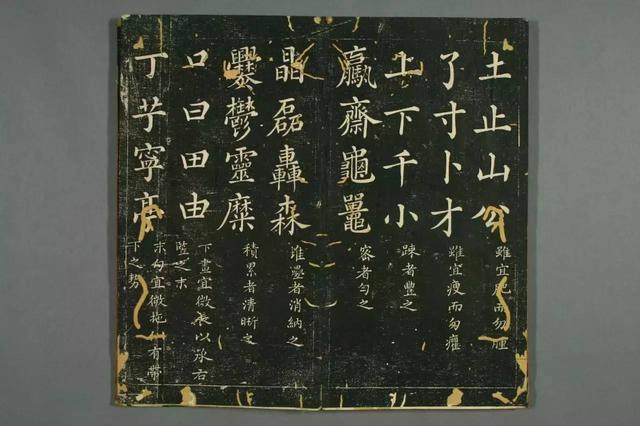 土止山公
雖宜肥而勿腫
了寸卜才
雖宜瘦而勿癯
上下千小
踈者豐之
齋龜鼉
密者勻之
晶磊轟森
堆壘者消納之
爨鬱靈糜
積累者清晰之
口曰田由
下畫宜微長以承右
竪之末
丁芋寧亭
末勾宜微拖有帶
下之勢